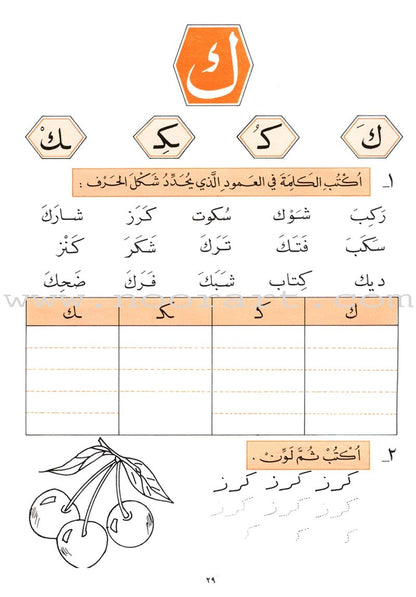 ك
كَ كُـ ـكِـ ـكْ
١ـ اُكْتُبِ الكَلِمَةَ في العَمودِ الَّذي يُحَدِّدُ شَكْلَ الحَرْفِ :
رَكِبَ شَوْك سُكوت كَرَز شارَكَ
سَكَبَ فَتَكَ تَرَكَ شَكَرَ كَنْز
ديك كِتاب شَبَكَ فَرَكَ ضَحِكَ
www.noorart.com
ك كـ ـكـ ـك
٢ـ اُكْتُبْ ثُمَّ لَوِّنْ .
كرز كرز كرز
كرز كرز كرز
ك ك ك
٢٩